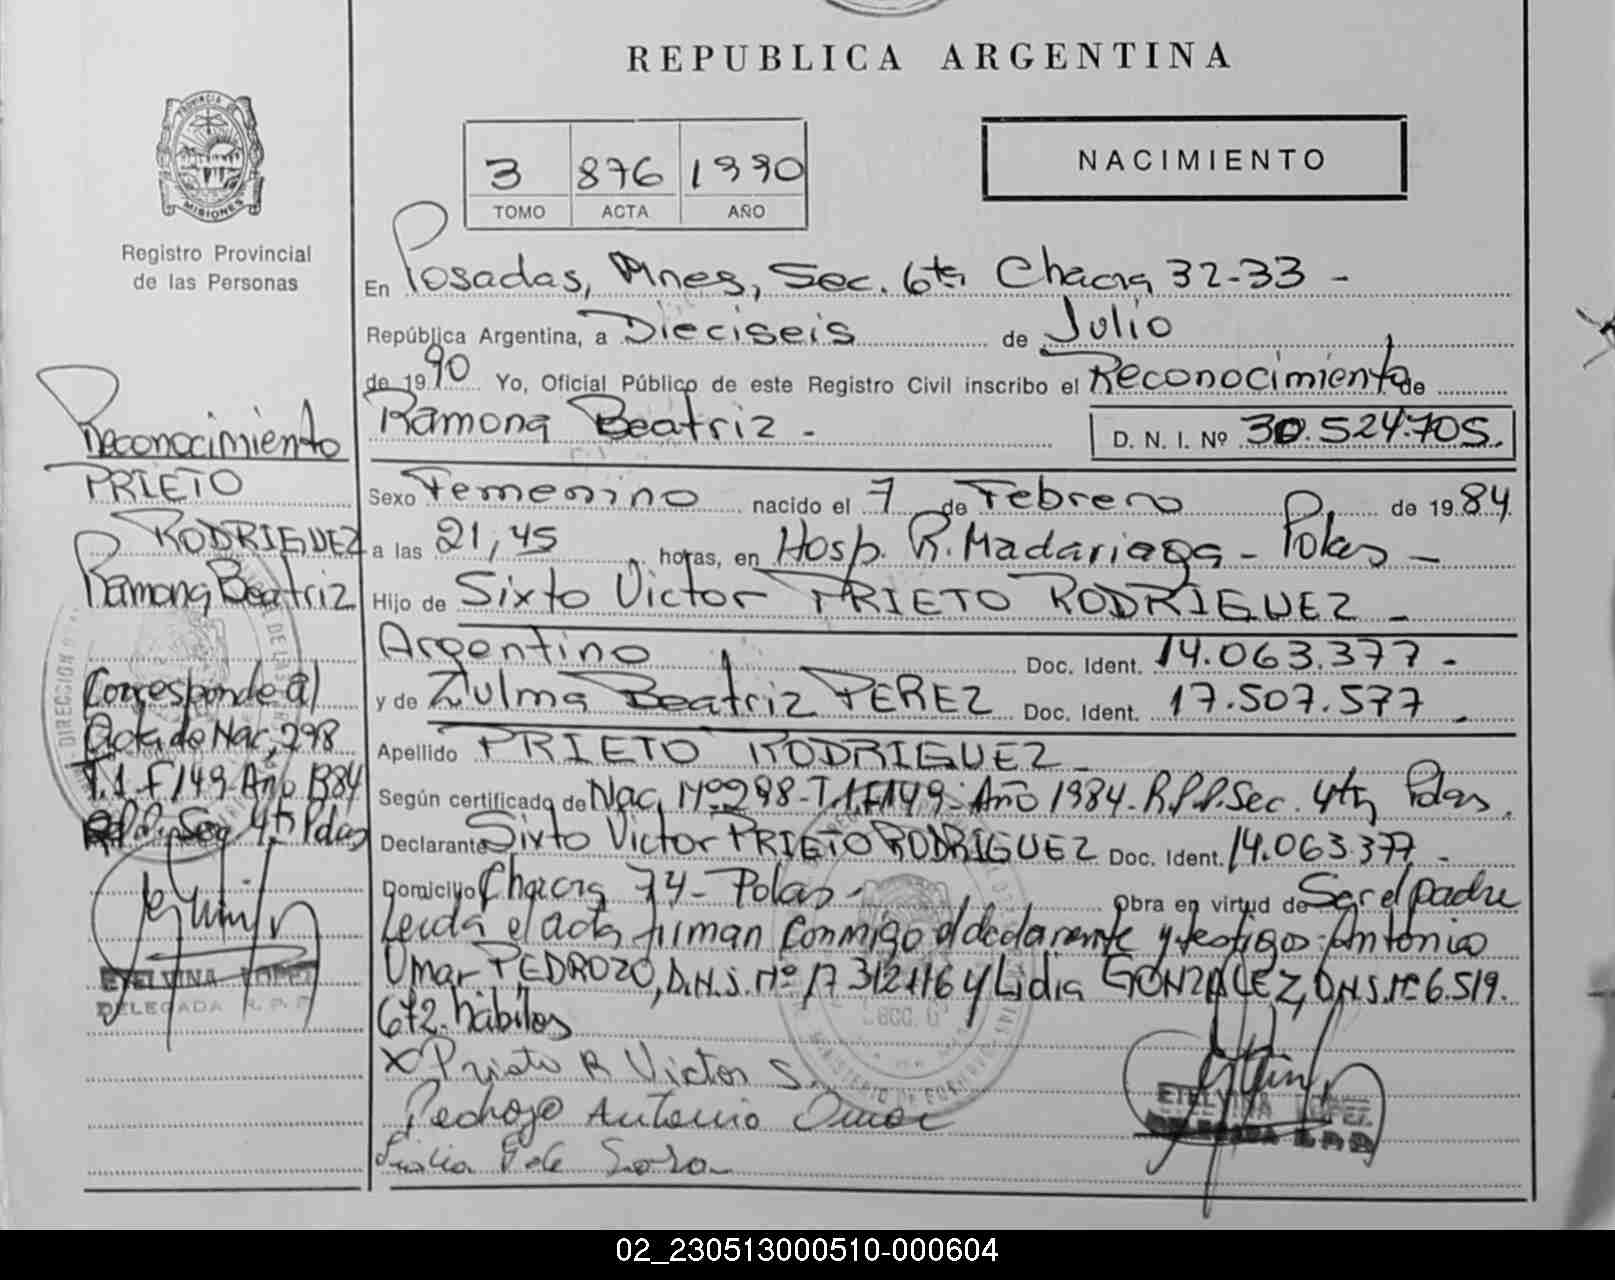 REPUBLICA ARGENTINA
PROVINCIA DE
MISIONES
Registro Provincial
de las Personas
3 876 1990
TOMO ACTA AÑO
NACIMIENTO
En Posadas, Mnes, Sec. 6ta Chacra 32-33 -
República Argentina, a Dieciseis de Julio
de 1990 Yo, Oficial Público de este Registro Civil inscribo el Reconocimiento de
Ramona Beatriz - D. N. I. Nº 30.524.705.
Sexo Femenino nacido el 7 de Febrero de 1984
a las 21,45 horas, en Hosp. R. Madariaga - Pdas -
Hijo de Sixto Victor PRIETO RODRIGUEZ -
Argentino Doc. Ident. 14.063.377 -
y de Zulma Beatriz PEREZ Doc. Ident. 17.507.577 -
Apellido PRIETO RODRIGUEZ -
Según certificado de Nac, Nº 298-T.1.F149-Año 1984-R.P.P. Sec. 4ta Pdas.
Declarante Sixto Victor PRIETO RODRIGUEZ Doc. Ident. 14.063.377 -
Domicilio Chacra 74 - Pdas - Obra en virtud de Ser el padre
Leida el acta firman conmigo el declarante y testigos: Antonio
Omar PEDROZO, D.N.I. Nº 17 312116 y Lidia GONZALEZ, D.N.I. Nº 6.519.
672. hábiles
X Prieto R Victor S.
Pedrozo Antonio Omar
ETELVINA LOPEZ
DELEGADA R.P.P.
Reconocimiento
PRIETO
RODRIGUEZ
Ramona Beatriz
Corresponde al
Acta de Nac, 298
T.1 F149 Año 1984
R.P.P. Sec 4ta Pdas
ETELVINA LOPEZ
DELEGADA R.P.P.
02_230513000510-000604